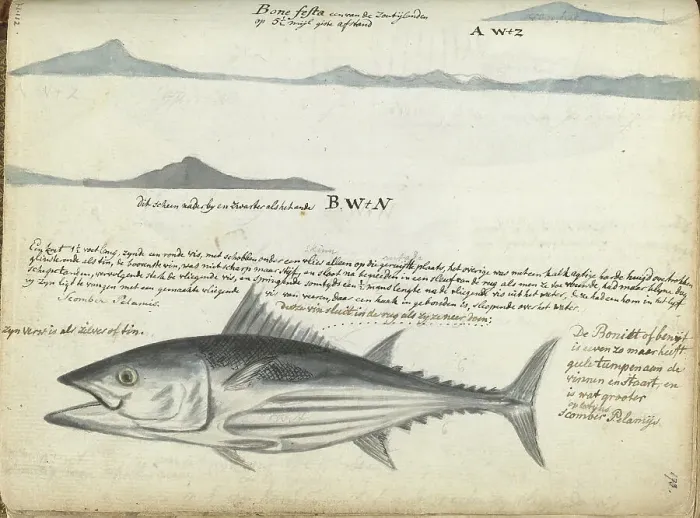 Bone festa een van de Zoutijlanden
op 5½ mijl gise afstand
A W+Z
B. W+N
Dit scheen nader by en zwarter als het ande
Een voet 1½ voet lang, zynde een ronde vis, met schobben onder een vlies alleen op die geruijte plaats, het overige was met een kalkagtige harde huijd overtrokken
glinsterende als tin, de bovenste vin, was niet scharp maar stijf, en sloot na beneden in een sleuf van de rug als men ze toe vouwde had maar kleyne
scherpe tanden, vervolgende sterk de vliegende vis, en springende somtyds een ½ mans lengte na de vliegende vis uit het water,
zy zyn ligt te vangen met een gemaakte vliegende vis van veeren, daar een haak in gebonden is, slepende over het water.
Scomber Pelamis.
Deeze vin sluit in de rug als zy ze neer doen;
zyn verw is als zilver of tin.
De Bonidt of benijt
is even zo maar heeft
geele
vinnen en staart, en
is wat grooter
Scomber Pelamijs.